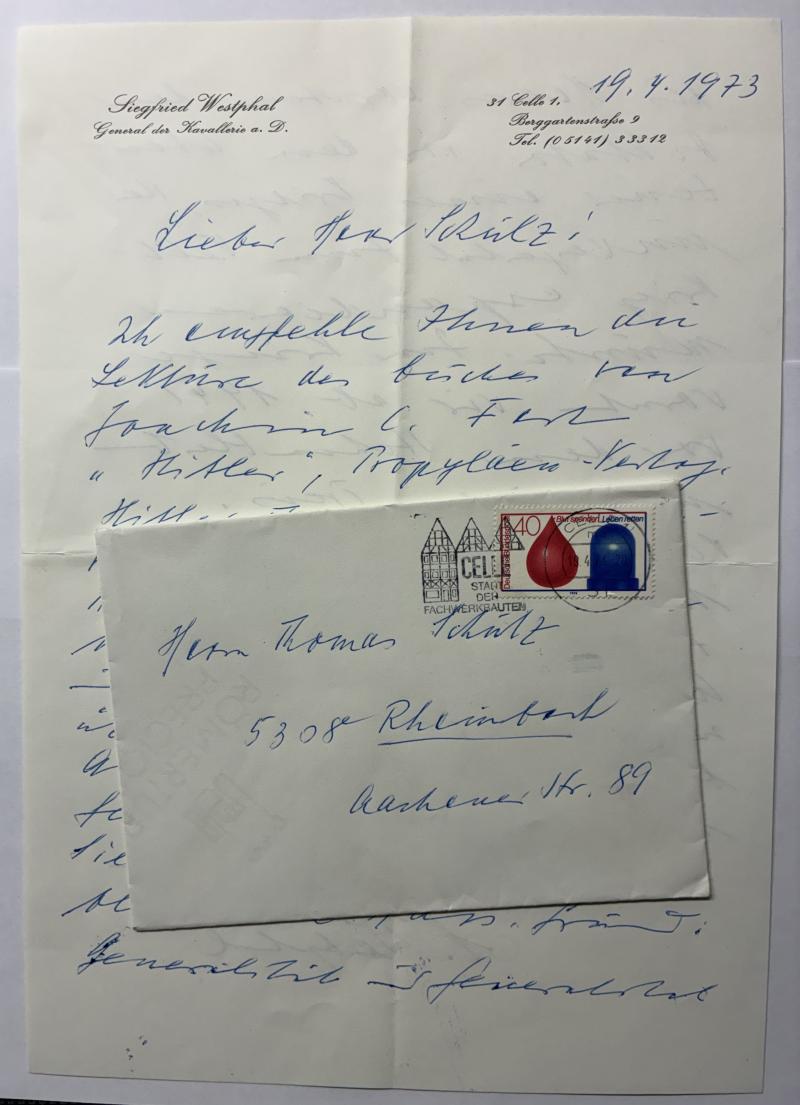 Siegfried Westphal
General der Kavallerie a. D.
31 Celle 1,
Berggartenstraße 9
Tel. (05141) 33312
19. 4. 1973
Lieber Herr Schülz!
Ich empfehle Ihnen die
Lektüre des Buches von
Joachim C. Fest
„Hitler“, Propyläen-Verlag.
40
Blut spenden Leben retten
Deutsche Bundespost
CELLE
STADT
DER
FACHWERKBAUTEN
Herrn Thomas Schülz
5308 Rheinbach
Aachener Str. 89
Sie
be
Generalität u Generalstab